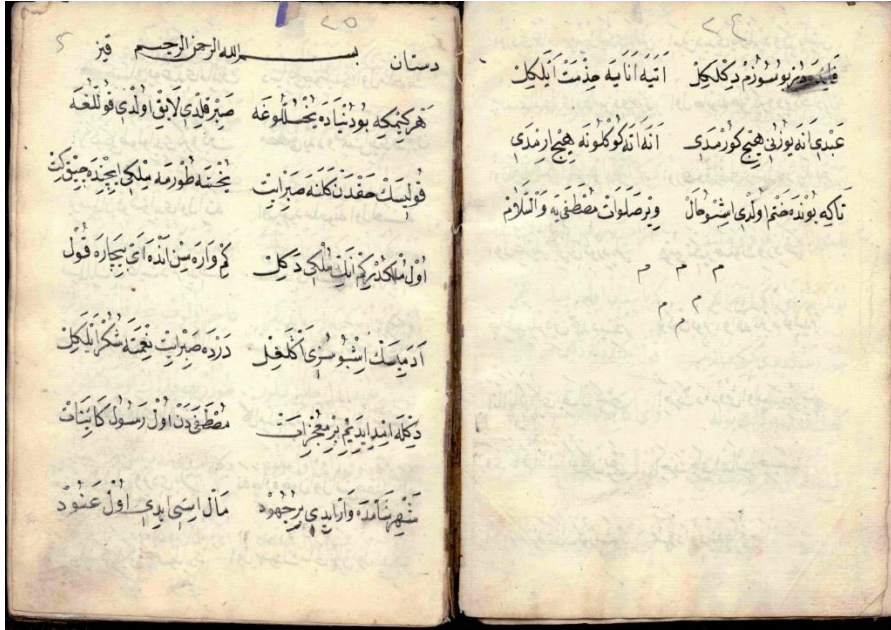 قارنداشلر بو سوزم دكله كل اتيه انايه خذمت ايله كل
عبدي انه يوزني هيج كورمدي انه اته كوكلونه هيج ارمدي
تاكه بونده ختم اولدي اشبو حال وير صلوات مصطفى يه والسلام
م م م
م م م
دستان بسم الله الرحمن الرحيم قيز
هر كمكه بو دنياده يخسللوغه صبر قلدي لايق اولدي قوللغه
قوليسك حقدن كلنه صبر ايت يخسه طورمه ملكي ايچنده چيق كت
اول ملكدر كم انك ملكي دكل كم واره سن انده اي بيچاره قول
ادميسك اشبو سزي اكلغل درده صبر ايت نعمته شكر ايله كل
دكله امد ايديم بر معجزات مصطفى دن اول رسول كاينات
شهر شامده وار ايدي بر جهود مال اسي ايدي اول عنود